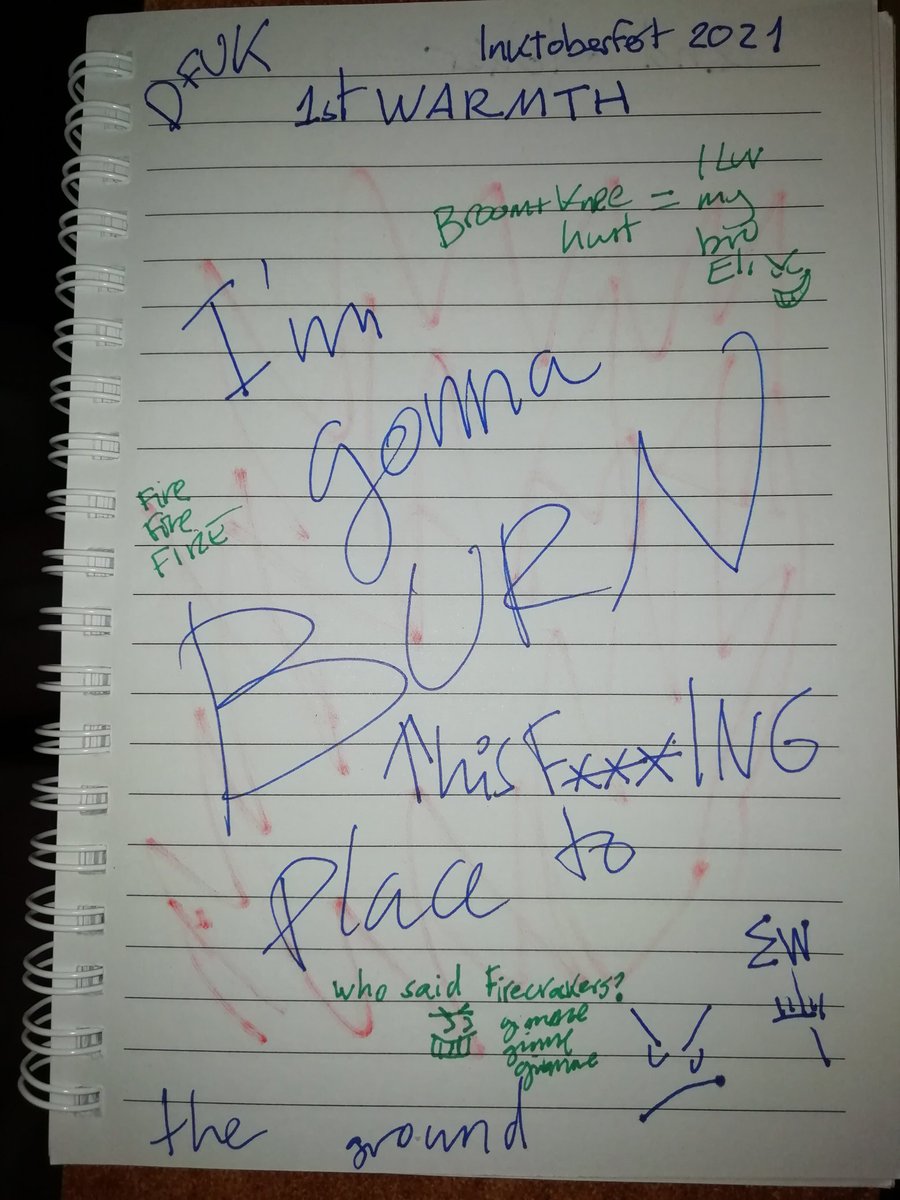 DFUK
Inktoberfest 2021
1st WARMTH
Broom+Knee = I Luv
hurt my
bro
Eli
I'm
gonna
BURN
Fire
Fire
FIRE
This FxxxING
place to
who said Firecrakers?
gimme
gimme
gimme
the ground